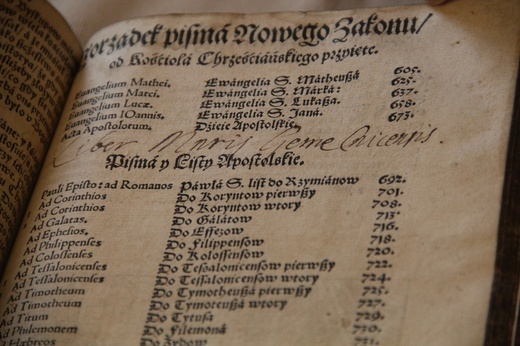 porządek pisma Nowego Zakonu/
od Kościoła Chrześciáńskiego przyięte.
Euangelium Mathei. Ewángelia S. Mátheuszá 605.
Euangelium Marci. Ewángelia S. Márká: 625.
Euangelium Lucæ. Ewángelia S. Lukaszá. 637.
Euangelium IOannis. Ewángelia S. Janá. 658.
Acta Apostolorum. Dzieie Apostolskie. 673.
Liber
Pismá y Listy Apostolskie.
Pauli Episto: ad Romanos Páwłá S. list do Rzymiánow 692.
Ad Corinthios Do Koryntow pierwszy 701.
Ad Corinthios Do Koryntow wtory 708.
Ad Galatas. Do Gálátow 713
Ad Ephesios. Do Effezow 716.
Ad Philippenses Do Filippensow 718.
Ad Colossenses Do Kolossensow 720.
Ad Tessalonicenses Do Tessalonicensow pierwszy 722.
Ad Tessalonicenses Do Tessalonicensow wtory 724.
Ad Timotheum Do Tymotheuszá pierwszy 725.
Ad Timotheum Do Tymoteuszá wtory 727.
Ad Titum Do Tytusá 729.
Ad Philemonem Do Filemoná 730.
Hæbreos Do Żydow 731.